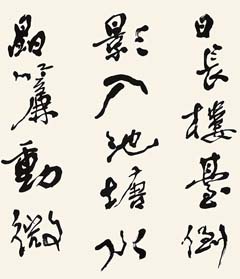 日長樓臺倒
影入池塘水
晶簾動微